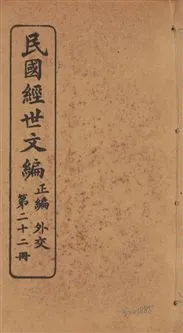 民國經世文編
正編 外交
第二十二冊